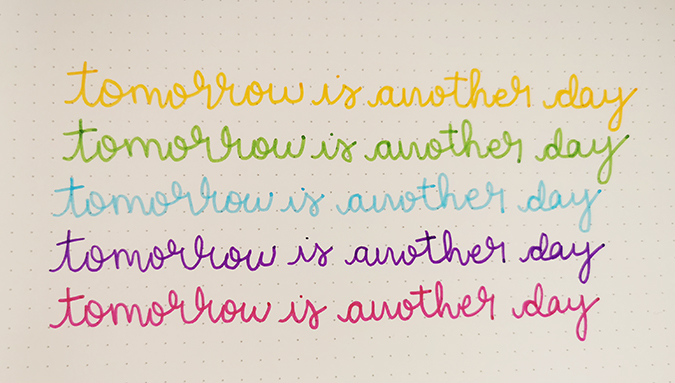 tomorrow is another day
tomorrow is another day
tomorrow is another day
tomorrow is another day
tomorrow is another day